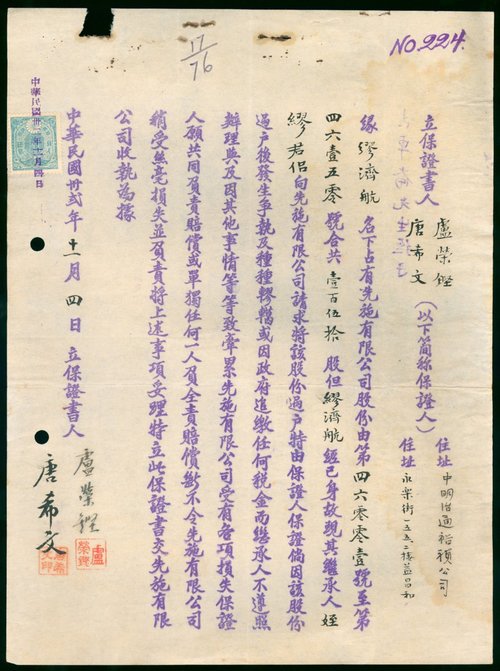 NO.224.
17/76
立保證書人 盧榮鏗 唐希文 (以下簡稱保證人) 住址 住址 永樂街一五二號益昌和
緣 繆濟航 名下占有先施有限公司股份由第 四六零零壹 號至第
四六壹五零 號合共 壹百伍拾 股但 繆濟航 經已身故現其繼承人 姪
繆若侶 向先施有限公司請求將該股份過戶特由保證人保證倘因該股份
過戶後發生爭執及種種轇轕或因政府追繳任何稅金而繼承人不遵照
辦理與及因其他事情等等致牽累先施有限公司受有各項損失保證
人願共同負責賠償或單獨任何一人負全責賠償斷不令先施有限公司
稍受絲毫損失並負責將上述事項妥理特立此保證書交先施有限
公司收執為據
中華民國卅弍年 十一 月 四 日 立保證書人 盧榮鏗
唐希文
中華民國卅 年十一月四日